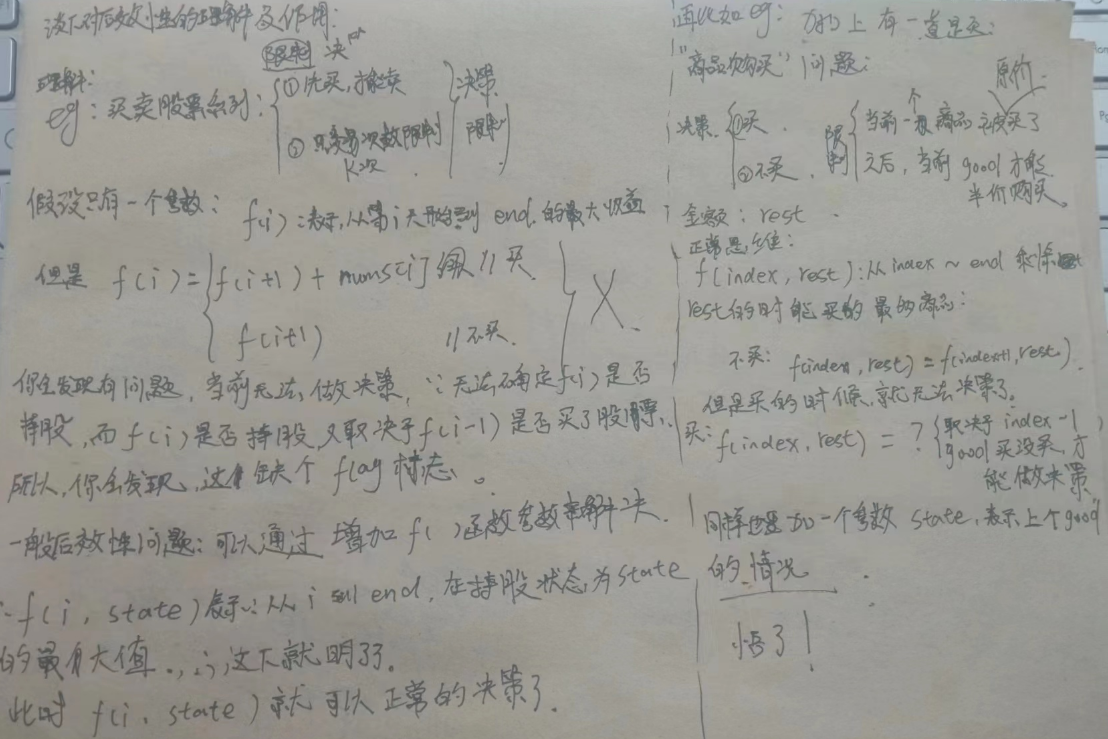 谈下对后效性的理解及作用:
限制 决
理解:
eg: 买卖股票系列:
①先买,才能卖
② 交易次数限制
K次
决策
限制
假设只有一个参数:
f(i): 表示,从第i天开始到 end 的最大收益
但是 f(i) = f(i+1) + nums[i] //买
f(i+1) //不买
X
你会发现有问题,当前无法做决策,∵无法确定f(i)是否
持股,而f(i)是否持股,又取决于f(i-1)是否买了股票,
所以,你会发现,这里缺个 flag 状态。
一般后效性问题:可以通过 增加 f( )函数参数来解决.
∴ f(i, state)表示:从 i 到 end,在持股状态为state
的最大值.,∴这下就明了了.
此时 f(i, state)就可以正常的决策了.
再比如eg: 力扣上有一道题:
"商品购买"问题:
原价
决策
①买
②不买
限制
当前一个商品被买了
之后,当前 good 才能
半价购买。
金额: rest
正常思维:
f(index, rest): 从 index ~ end 剩余
rest的时候能买的 最 的商品:
不买: f(index, rest) = f(index+1, rest)
但是买的时候,就无法决策了。
买: f(index, rest) = ? 取决于 index-1
good 买没买,才
能做决策
同样 加一个参数 state,表示上个good
的情况
悟了!